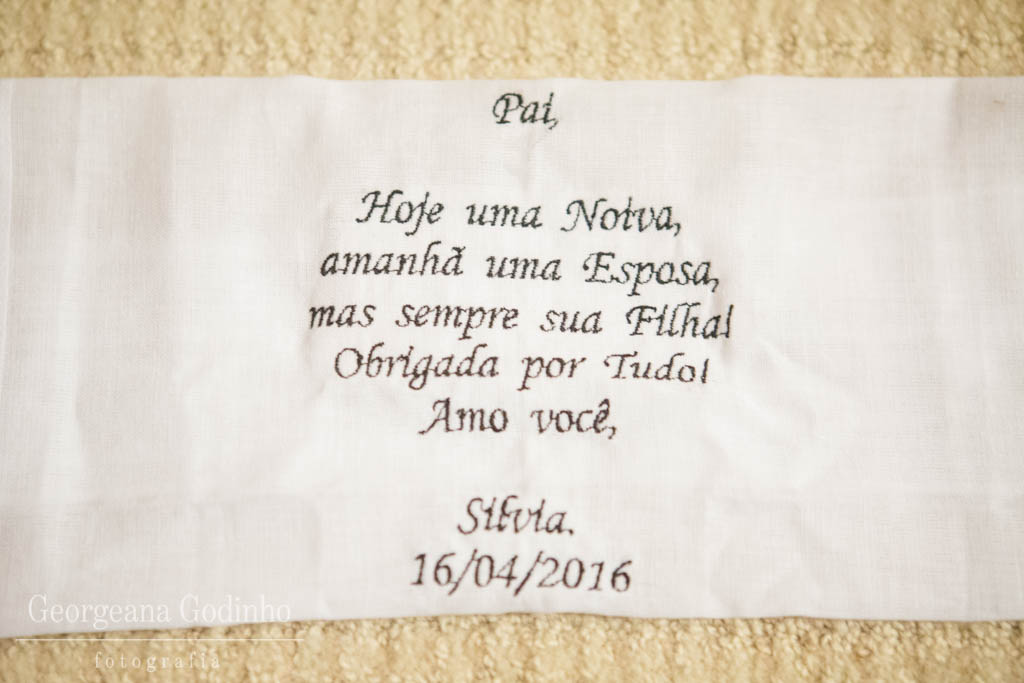 Pai,
Hoje uma Noiva,
amanhã uma Esposa,
mas sempre sua Filha!
Obrigada por Tudo!
Amo você,
Silvia.
16/04/2016
Georgeana Godinho
fotografia